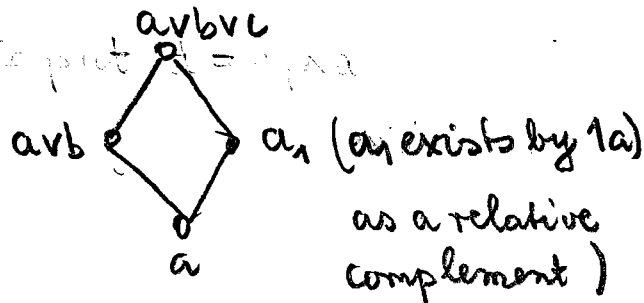 avbvc
avb a₁ (a₁ exists by 1a)
as a relative
a complement)